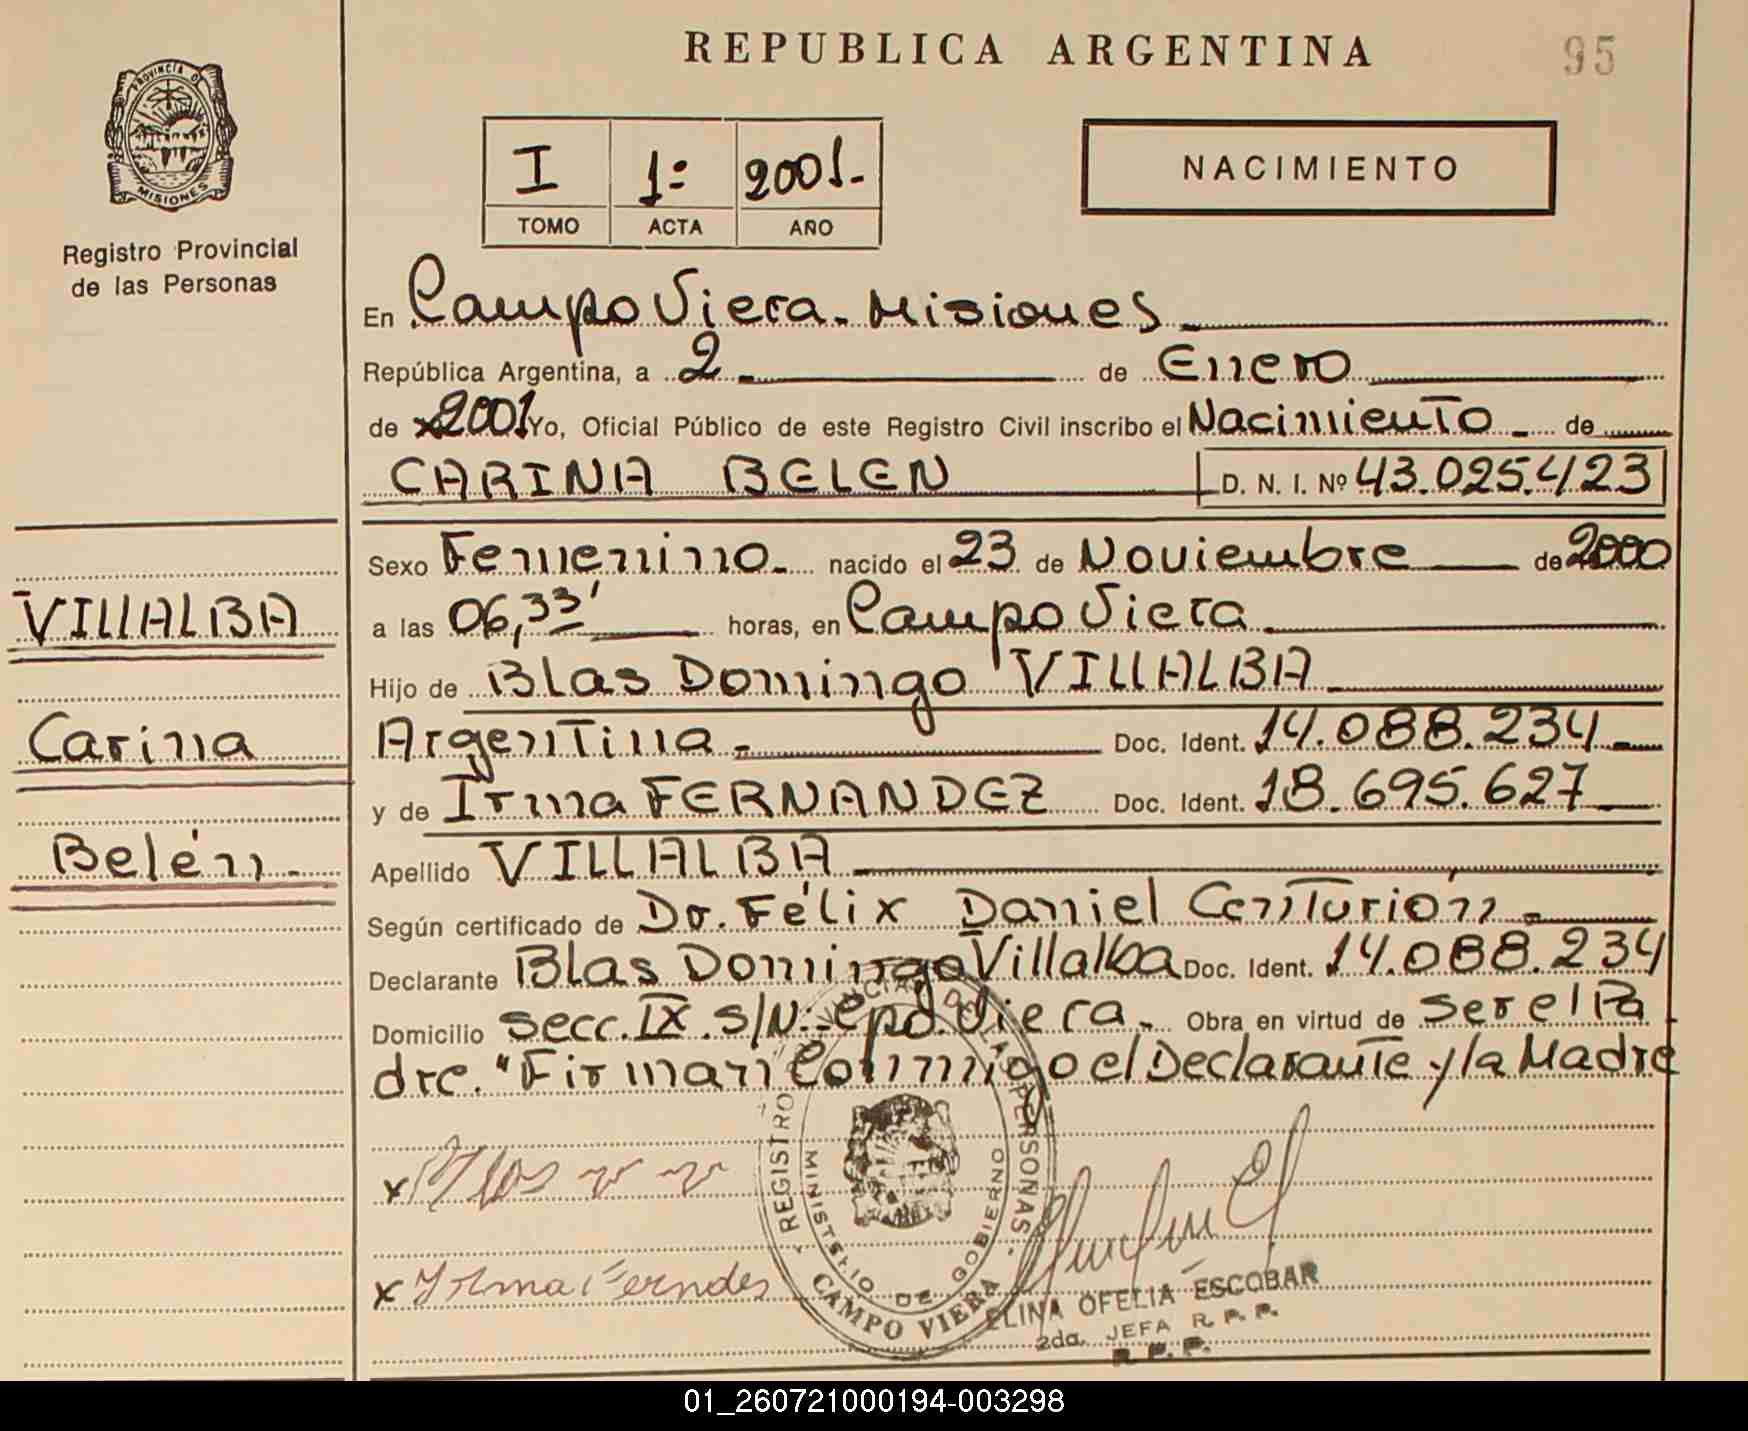 REPUBLICA ARGENTINA
95
PROVINCIA DE
MISIONES
Registro Provincial
de las Personas
I 1: 2001.-
TOMO ACTA AÑO
NACIMIENTO
En Campo Viera.- Misiones
República Argentina, a 2 de Enero
de 2001 Yo, Oficial Público de este Registro Civil inscribo el Nacimiento de
CARINA BELEN D. N. I. Nº 43.025.423
Sexo Femenino nacido el 23 de Noviembre de 2000
a las 06,33' horas, en Campo Viera
Hijo de Blas Domingo VILLALBA
Argentina Doc. Ident. 14.088.234
y de Irma FERNANDEZ Doc. Ident. 18.695.627
Apellido VILLALBA
Según certificado de Dr. Félix Daniel Centurión
Declarante Blas Domingo Villalba Doc. Ident. 14.088.234
Domicilio secc. IX. s/N: Cpo. Viera. Obra en virtud de ser el Pa
dre. "Firman Conmigo el Declarante y la Madre
VILLALBA
Carina
Belén
x Blas
x Irma Ferndes
REGISTRO PROVINCIAL DE LAS PERSONAS
MINISTERIO DE GOBIERNO
CAMPO VIERA
ELINA OFELIA ESCOBAR
2da. JEFA R. P. P.
R. P. P.
01_260721000194-003298